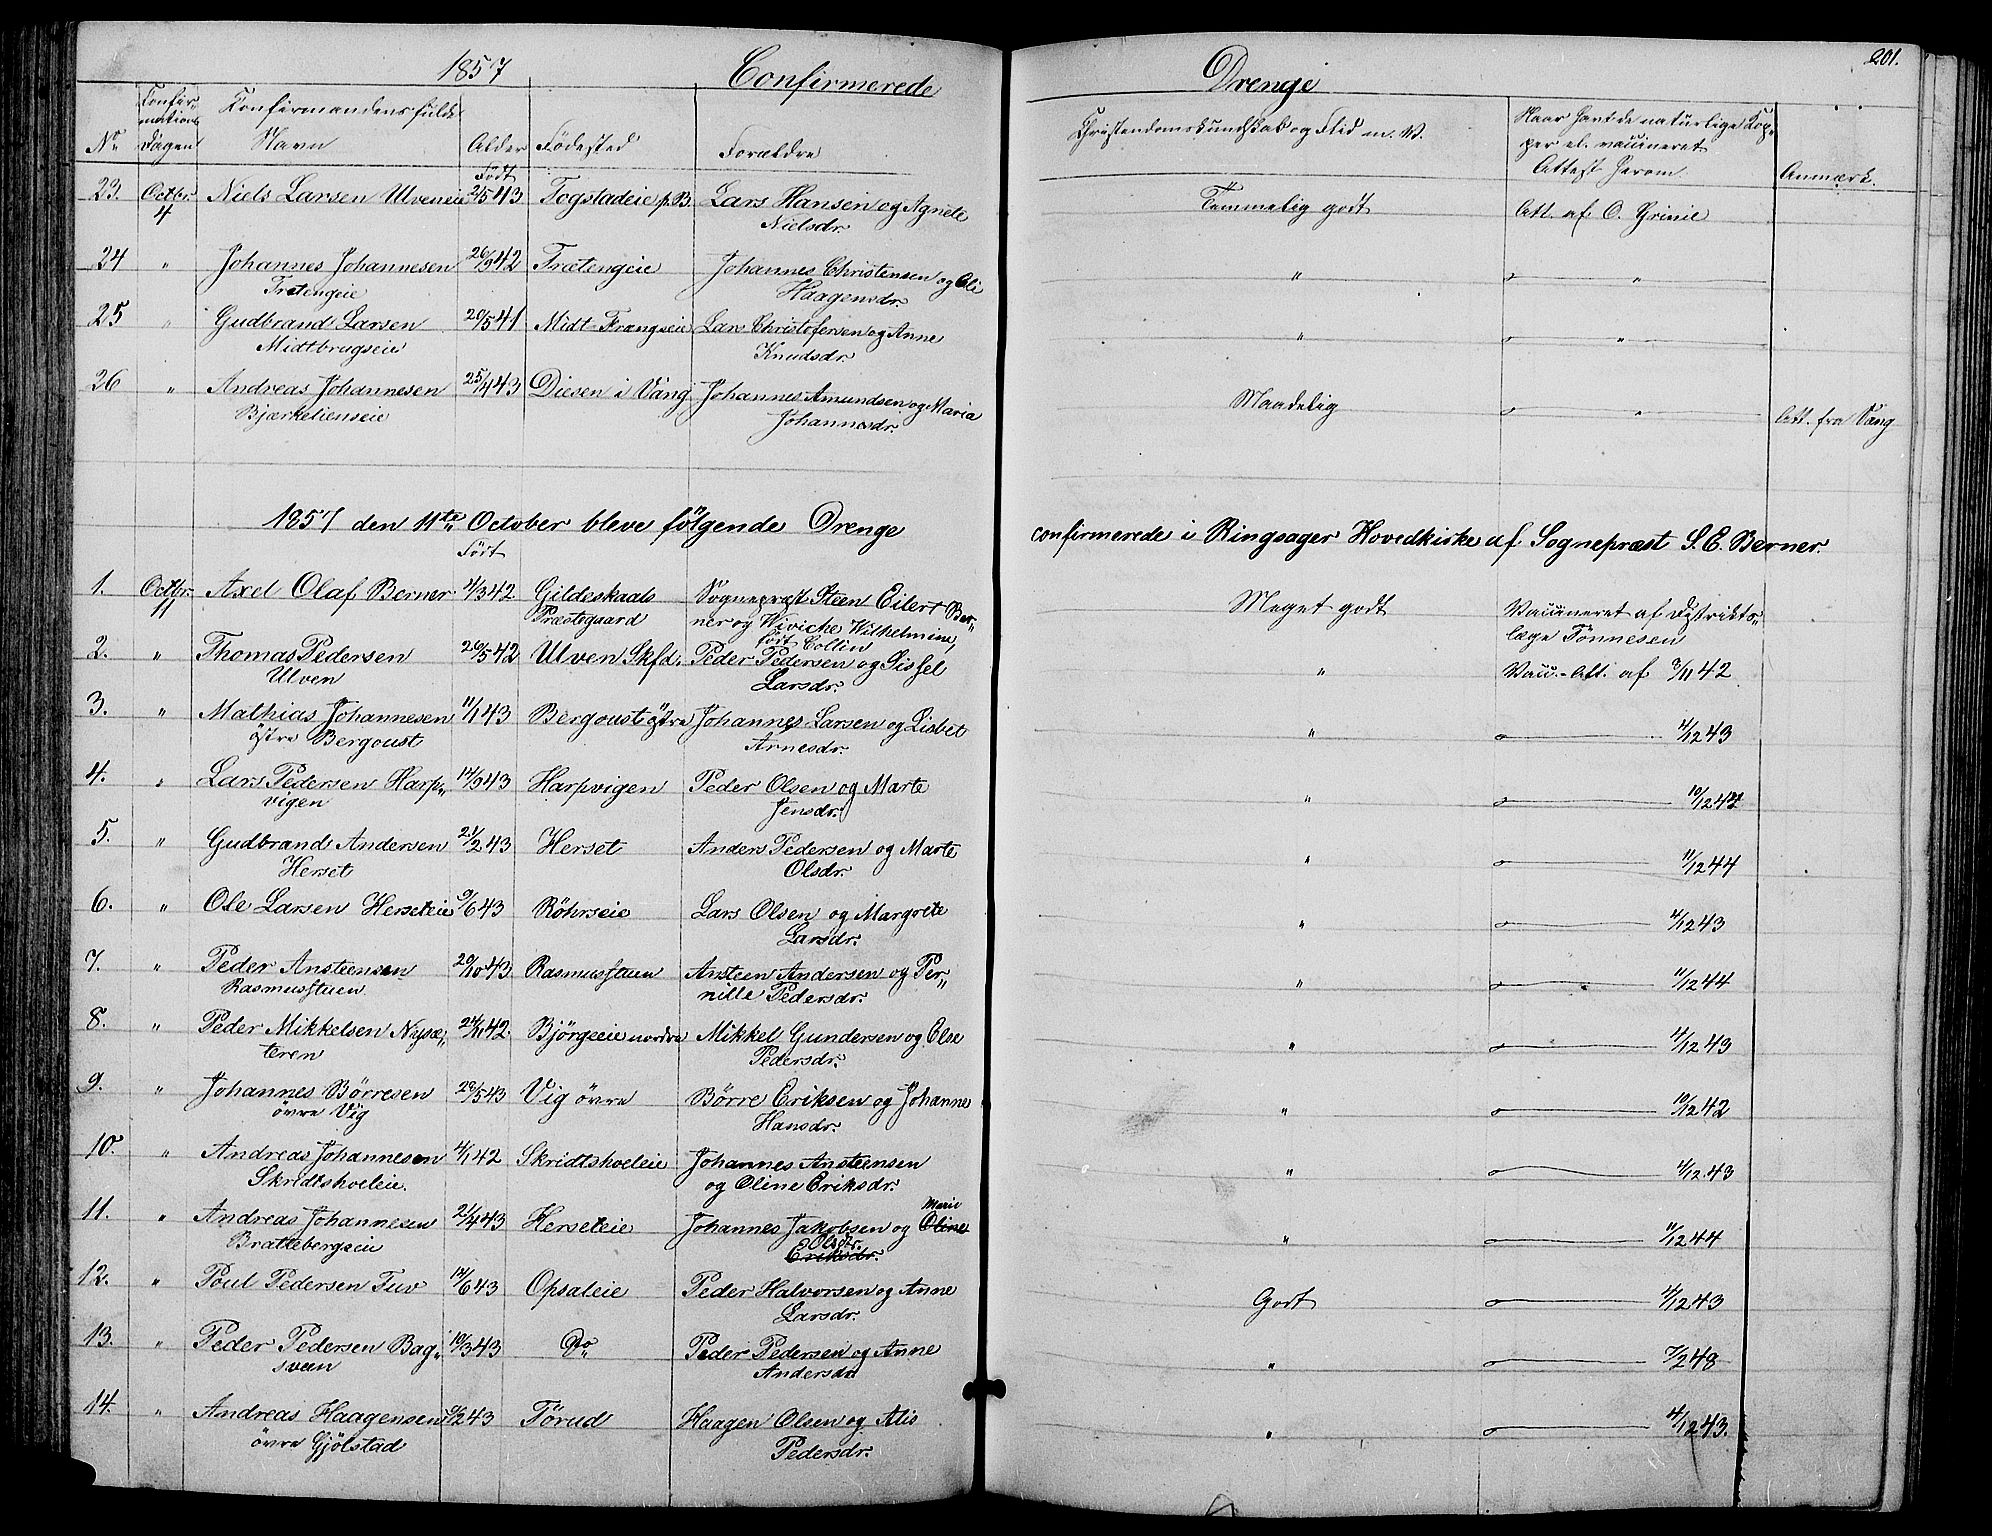 1857 Confirmerede
Drenge 201.
No Confirmations Dagen Konfirmandens fulde Navn Alder Födested Forældre
Christendomskundskab og Flid m. V. Naar havt de naturlige Kopper el. vaccineret Attest herom. Anmærk.
Födt
23. Octbr. 4 Niels Larsen Ulveneie 2/5 43 Fogstadeie p. B. Lars Hansen og Agnete Temmelig godt Att. af O. Grinie
Nielsdr.
24 " Johannes Johannesen 26/9 42 Frætengeie Johannes Christensen og Oli " "
Fretengeie Haagensdr.
25 " Gudbrand Larsen 20/5 41 Midt-Frangseie Lars Christofersen og Anne " "
Midtbrugseie Knudsdr.
26 " Andreas Johannesen 25/4 43 Diesen i Vang Johannes Amundsen og Maria Maadelig " Att. fra Vang
Bjærkelienseie Johannesdr.
1857 den 11te October bleve følgende Drenge confirmerede i Ringsager Hovedkirke af Sognepræst S. E. Berner.
Födt
1. Octbr. 11 Axel Olaf Berner 4/3 42 Gildeskaals Sognepræst Steen Eilert Ber- Meget godt Vaccineret af Distrikts-
Præstegaard ner og Wiviche Wilhelmine, læge Tönnesen
födt Collin
2. " Thomas Pedersen 26/5 42 Ulven Skfd. Peder Pedersen og Sissel " Vacc.-Att. af 3/11 42
Ulven Larsdr.
3. " Mathias Johannesen 11/1 43 Bergoust östre Johannes Larsen og Lisbet " 4/12 43
östre Bergoust Arnesdr.
4. " Lars Pedersen Harp- 14/9 43 Harpvigen Peder Olsen og Marte "
vigen Jensdr.
5. " Gudbrand Andersen 21/2 43 Herset Anders Pedersen og Marte " 11/12 44
Herset Olsdr.
6. " Ole Larsen Herseteie 9/6 43 Röhrseie Lars Olsen og Margrete " 4/12 43
Larsdr.
7. " Peder Ansteensen 20/10 43 Rasmusstuen Ansteen Andersen og Per- " 11/12 44
Rasmusstuen nille Pedersdr.
8. " Peder Mikkelsen Nysæ- 24/11 42. Björgeeie nordre Mikkel Gundersen og Else " 4/12 43
teren Pedersdr.
9. " Johannes Börresen 20/5 43 Vig övre Börre Eriksen og Johanne " 10/12 42
övre Vig Hansdr.
10. " Andreas Johannesen 4/1 42 Skridtshoeleie Johannes Ansteensen " 4/12 43
Skridtshoeleie. og Oline Eriksdr.
Marie
11. " Andreas Johannesen 21/4 43 Herseteie Johannes Jakobsen og Oline " 11/12 44
Brattebergseie Olsdr. Eriksdr.
12. " Poul Pedersen Tuv 14/6 43 Opsaleie Peder Halvorsen og Anne Godt 4/12 43
Larsdr.
13. " Peder Pedersen Bag- 10/3 43 Do Peder Pedersen og Anne " 7/2 48
sveen Andersdr
14. " Andreas Haagensen 9/2 43 Törud Haagen Olsen og Alis " 4/12 43.
övre Gjölstad Pedersdr.